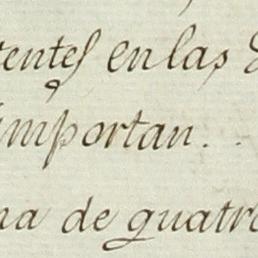 tentes en las
importan..
na de quatro